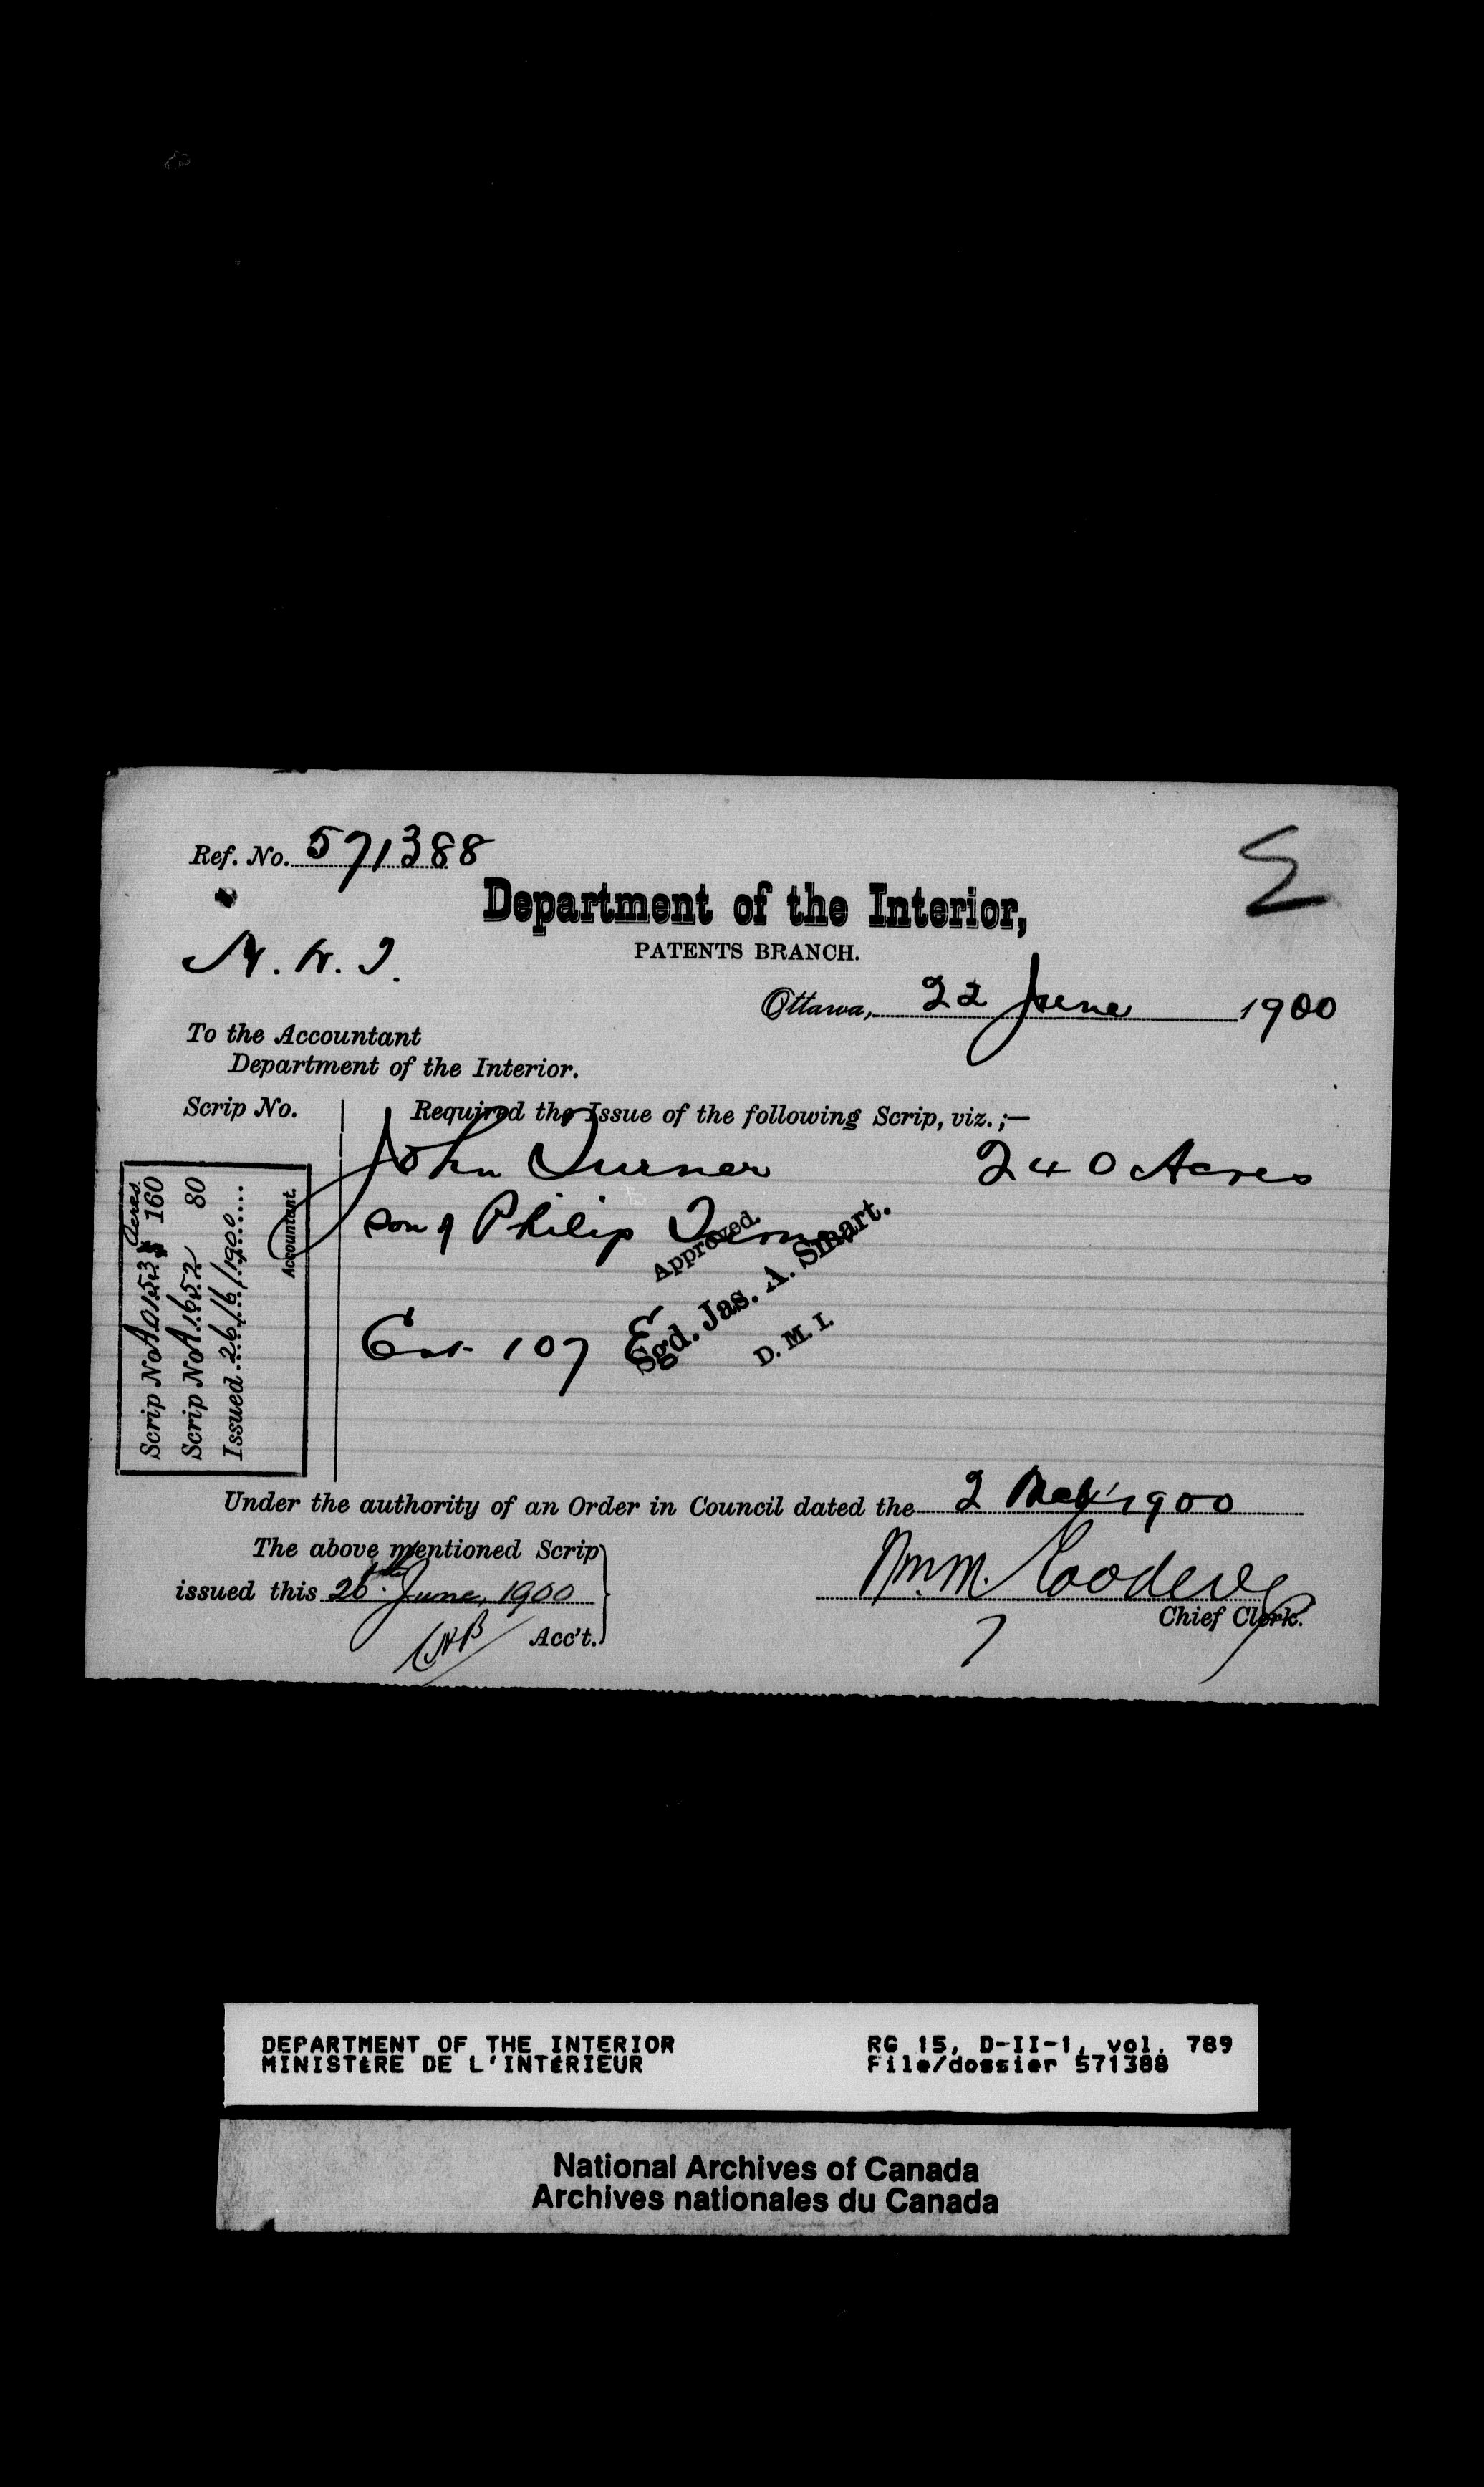 Ref. No. 571388
Department of the Interior,
PATENTS BRANCH.
N. W. T.
Ottawa, 22 June 1900
To the Accountant
Department of the Interior.
Scrip No.
Required the Issue of the following Scrip, viz.;—
John Turner 240 Acres
son of Philip Turner
Approved.
Sgd. Jas. A. Smart.
D. M. I.
107 E
Acres
Scrip No A 0153 $ 160
Scrip No A 1652 80
Issued 26/6/1900
Accountant.
Under the authority of an Order in Council dated the 2 May 1900
The above mentioned Scrip
issued this 26th June, 1900
Acc't.
Wm. M. Goodeve
Chief Clerk.
DEPARTMENT OF THE INTERIOR
MINISTÈRE DE L'INTÉRIEUR
RG 15, D-II-1, vol. 789
File/dossier 571388
National Archives of Canada
Archives nationales du Canada